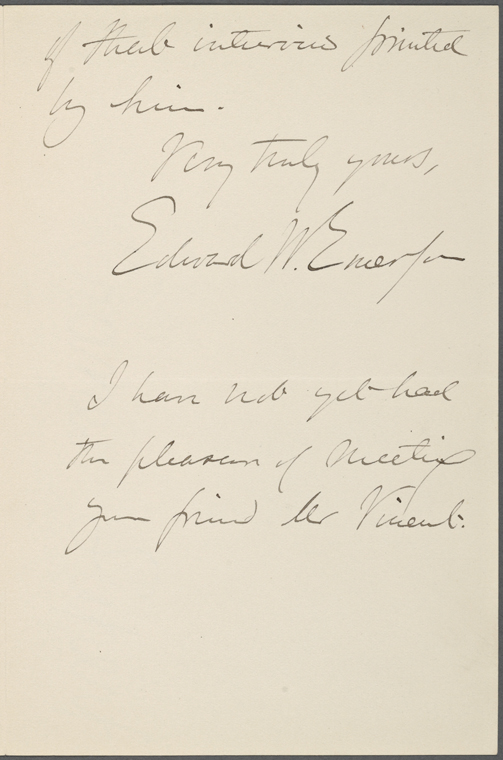 of that interview printed
by him.
Very truly yours,
Edward W. Emerson
I have not yet had
the pleasure of meeting
your friend Mr Vincent.